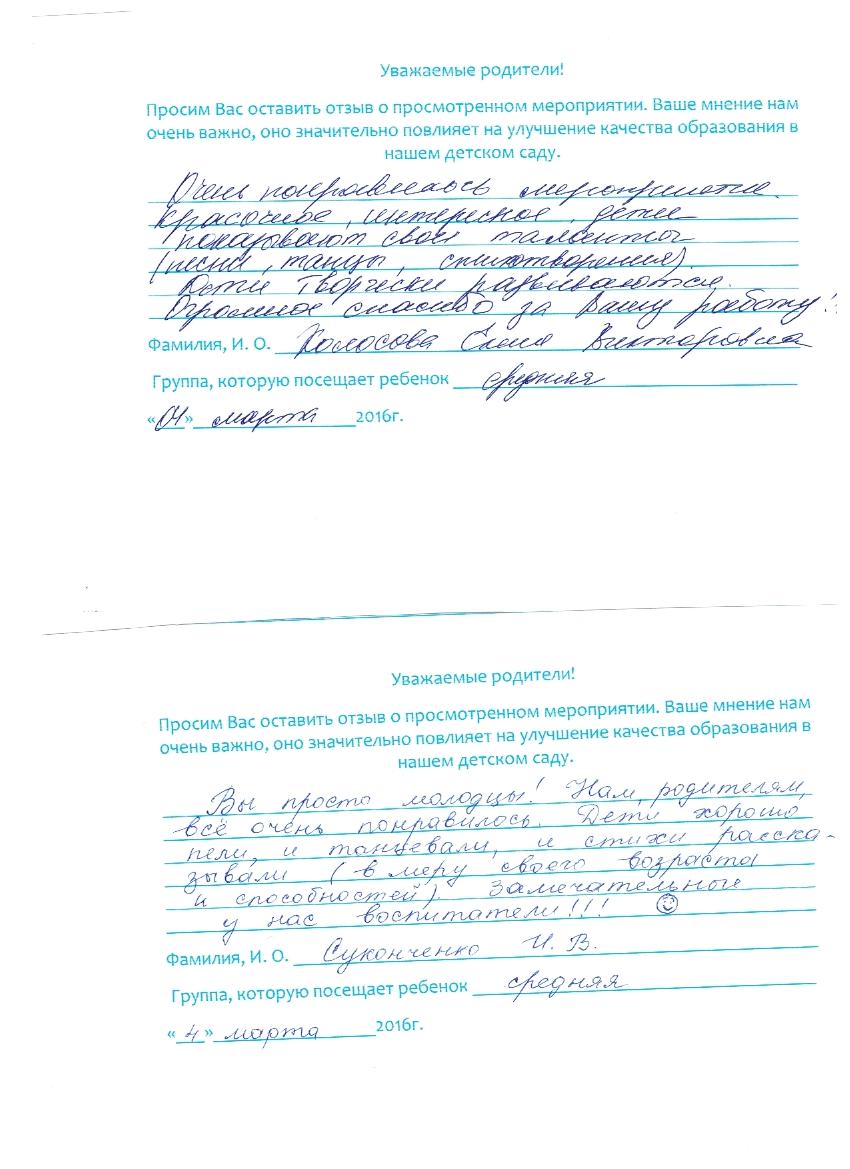 Уважаемые родители!
Просим Вас оставить отзыв о просмотренном мероприятии. Ваше мнение нам
очень важно, оно значительно повлияет на улучшение качества образования в
нашем детском саду.
Очень понравилось мероприятие.
Красочное, интересное, дети
показывают свои таланты
(песни, танцы, стихотворения).
Дети творчески развиваются.
Огромное спасибо за Вашу работу!
Фамилия, И. О. Колосова Елена Викторовна
Группа, которую посещает ребенок средняя
«04» марта 2016г.
Уважаемые родители!
Просим Вас оставить отзыв о просмотренном мероприятии. Ваше мнение нам
очень важно, оно значительно повлияет на улучшение качества образования в
нашем детском саду.
Вы просто молодцы! Нам, родителям,
всё очень понравилось. Дети хорошо
пели, и танцевали, и стихи расска-
зывали (в меру своего возраста
и способностей). Замечательные
у нас воспитатели!!! ☺
Фамилия, И. О. Суконченко И. В.
Группа, которую посещает ребенок средняя
«4» марта 2016г.